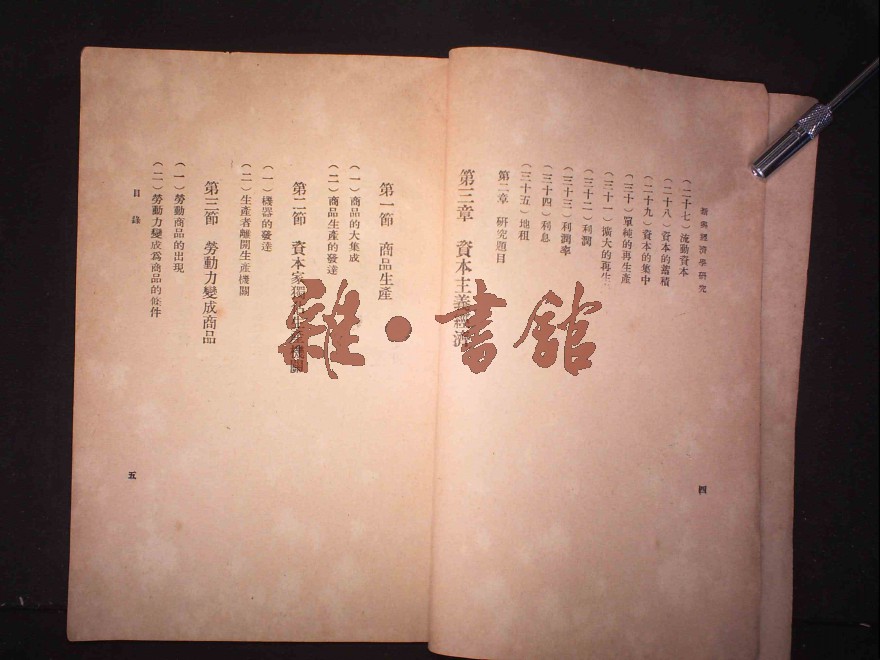 新興經濟學研究
(二十七)流動資本
(二十八)資本的蓄積
(二十九)資本的集中
(三十)單純的再生產
(三十一)擴大的再生
(三十二)利潤
(三十三)利潤率
(三十四)利息
(三十五)地租
第二章 研究題目
第三章 資本主義經濟
四
第一節 商品生產
(一)商品的大集成
(二)商品生產的發達
第二節 資本家獨占生產機關
(一)機器的發達
(二)生產者離開生產機關
第三節 勞動力變成商品
(一)勞動商品的出現
(二)勞動力變成為商品的條件
目錄
五
雜·書館